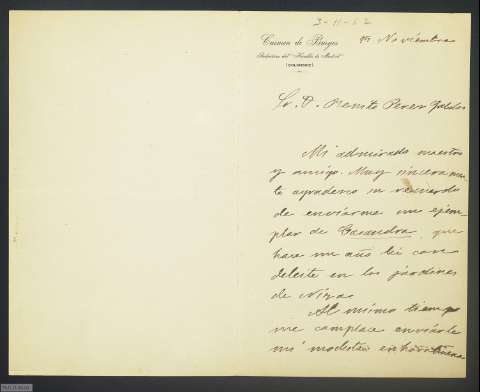 3-11-62
Carmen de Burgos
Redactora del "Heraldo de Madrid"
(COLOMBINE)
Noviembre
Sr. D. Benito Perez Galdos
Mi admirado maestro
y amigo. Muy sinceramen
te agradezco su recuerdo
de enviarme un ejem-
plar de Casandra, que
hace un año leí con
deleite en los jardines
de Niza.
Al mismo tiempo
me complace enviarle
mi modesta enhorabuena